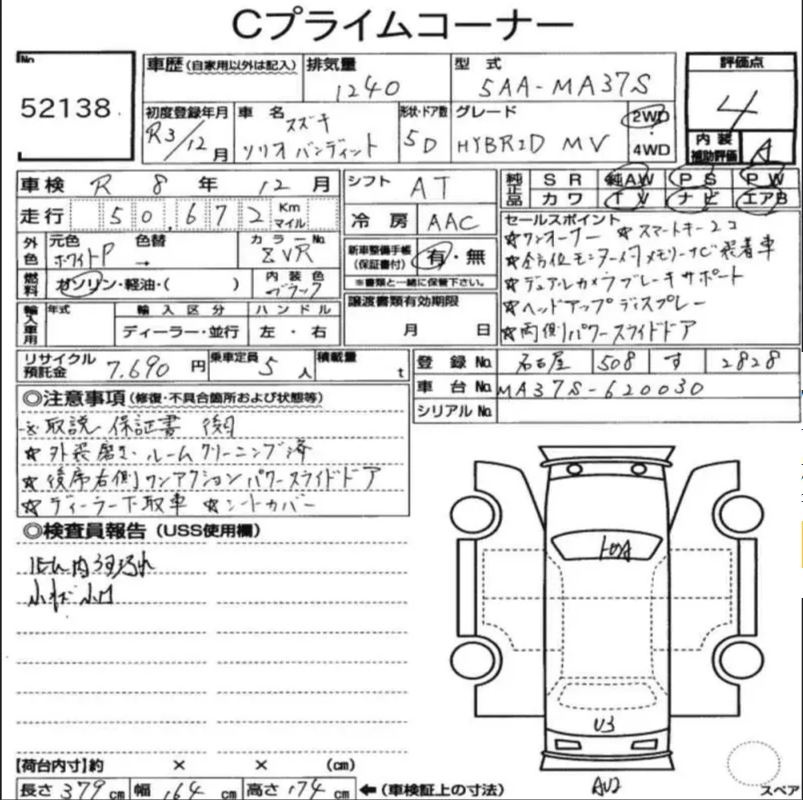 Cプライムコーナー
No.
52138
車歴(自家用以外は記入)
排気量
1240
型式
5AA-MA37S
評価点
4
初度登録年月
R3/12月
車名
スズキ
ソリオバンディット
形状・ドア数
5D
グレード
HYBRID MV
2WD
4WD
内装
補助評価
A
車検 R 8年 12月
シフト AT
純正品
SR 純AW PS PW
カワ TV ナビ エアB
走行 50,672 Km
マイル
冷房 AAC
セールスポイント
☆ワンオーナー ☆スマートキー2コ
☆全方位モニター付メモリーナビ装着車
☆デュアルカメラブレーキサポート
☆ヘッドアップディスプレー
☆両側パワースライドドア
外色
元色
ホワイトP
色替
→
カラーNo.
ZVR
新車整備手帳
(保証書付)
有・無
※書類と一緒に保管下さい。
燃料
ガソリン・軽油・( )
内装色
ブラック
譲渡書類有効期限
月 日
輸入車用
年式
輸入区分
ディーラー・並行
ハンドル
左・右
リサイクル
預託金
7,690円
乗車定員
5人
積載量
t
登録No. 名古屋 508 す 2828
車台No. MA37S-620030
シリアルNo.
◎注意事項(修復・不具合箇所および状態等)
☆取説 保証書 後日
☆外装磨き・ルームクリーニング済
☆後席右側ワンアクションパワースライドドア
☆ディーラー下取車 ☆シートカバー
◎検査員報告(USS使用欄)
小キズ 小凹
A
U3
AU2
【荷台内寸】約 × × (cm)
長さ379cm 幅164cm 高さ174cm ←(車検証上の寸法)
スペア